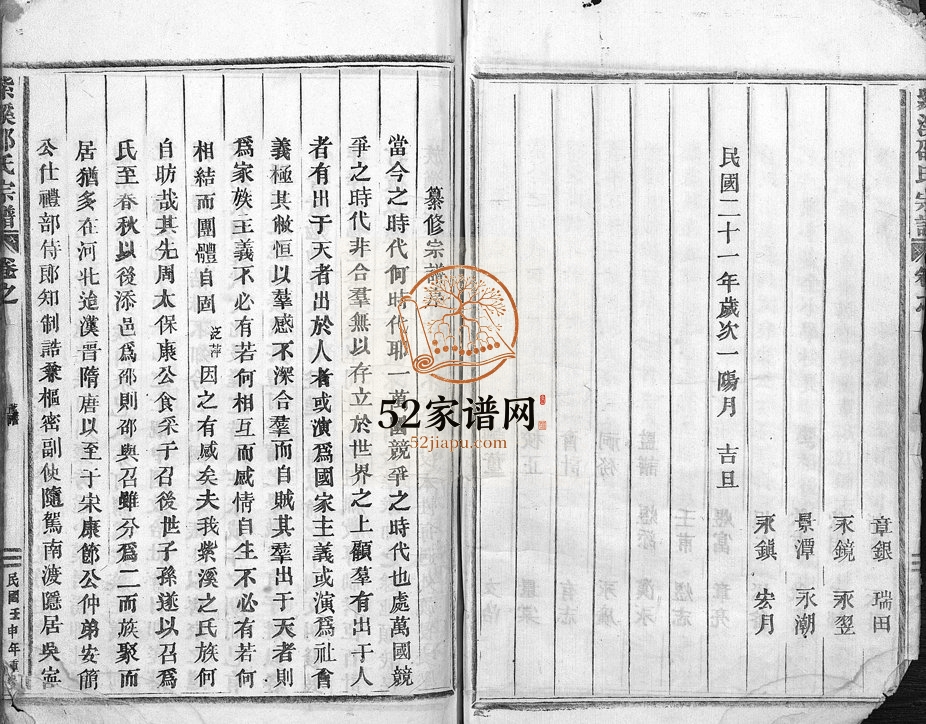 章銀 瑞田
永鏡 永翌
景潭 永潮
永鎮 宏月
民國二十一年歲次一陽月 吉旦
紫溪邵氏宗譜
纂修宗譜
當今之時代何時代耶一萬國競爭之時代也處萬國競
爭之時代非合羣無以存立於世界之上顧羣有出于人
者有出于天者出於人者或演爲國家主義或演爲社會
義極其敝恒以羣感不深合羣而自賊其羣出于天者則
爲家族主義不必有若何相互而感情自生不必有若何
相結而團體自固泛萍因之有感矣夫我紫溪之氏族何
自昉哉其先周太保康公食采于召後世子孫遂以召爲
氏至春秋以後添邑爲邵則邵與召雖分爲二而族聚而
居猶多在河北迨漢晉隋唐以至于宋康節公仲弟安簡
公仕禮部侍郎知制誥兼樞密副使隨駕南渡隱居吳寧
紫溪邵氏宗譜 卷之
民國壬申年重
52家谱网
52jiapu.com